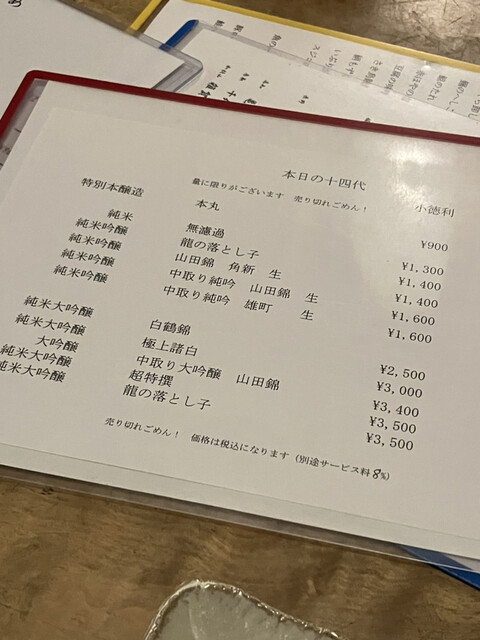 本日の十四代
量に限りがございます 売り切れごめん! 小徳利
特別本醸造 本丸 ¥900
純米 無濾過 ¥1,300
純米吟醸 龍の落とし子 ¥1,400
純米吟醸 山田錦 角新 生 ¥1,400
純米吟醸 中取り純吟 山田錦 生 ¥1,600
純米吟醸 中取り純吟 雄町 生 ¥1,600
純米大吟醸 白鶴錦 ¥2,500
純米大吟醸 極上諸白 ¥3,000
大吟醸 中取り大吟醸 山田錦 ¥3,400
純米大吟醸 超特撰 ¥3,500
純米大吟醸 龍の落とし子 ¥3,500
売り切れごめん! 価格は税込になります(別途サービス料8%)